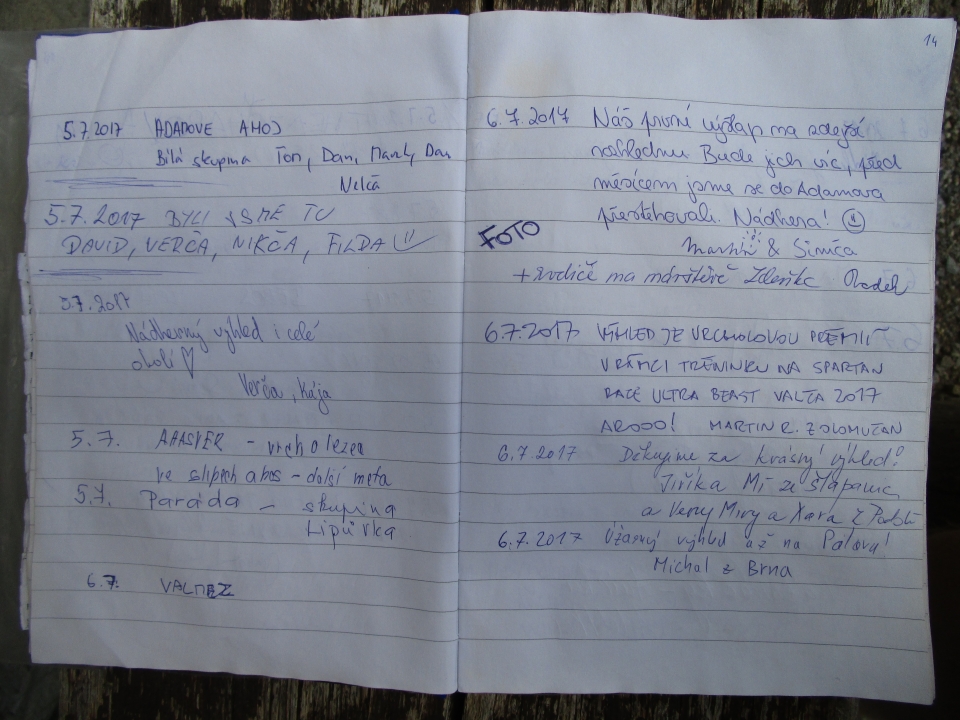 5.7.2017 ADAMOVE AHOJ
Bílá skupina Tom, Dan, Dan
5.7.2017 BYLI JSME TU
DAVID, VERČA, NIKČA, FILDA
5.7.2017
Nádherný výhled i celé
okolí ♡
Verča, Kája
5.7. AHASVER - vrcholezec
ve slipech - další meta
5.7. Paráda - skupina
Lipůvka
6.7. VALMEZ
14
6.7.2017 Náš první výšlap na zdejší
rozhlednu. Bude jich víc, před
měsícem jsme se do Adamova
přestěhovali. Nádhera!
FOTO
& Simča
+ rodiče na návštěvě Zdeňka Radek
6.7.2017 VÝHLED JE VRCHOLOVOU PRÉMIÍ
V RÁMCI TRÉNINKU NA SPARTAN
RACE ULTRA BEAST VALČA 2017
AROOO! MARTIN R. Z OLOMUČAN
6.7.2017 Děkujeme za krásný výhled!
Jiřka Mí ze Šlapanic
a Very Miry a
6.7.2017 Úžasný výhled až na Pálavu!
Michal z Brna